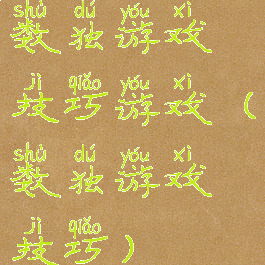 shù dú yóu xì
数独游戏
jì qiǎo yóu xì
技巧游戏（
shù dú yóu xì
数独游戏
jì qiǎo
技巧）